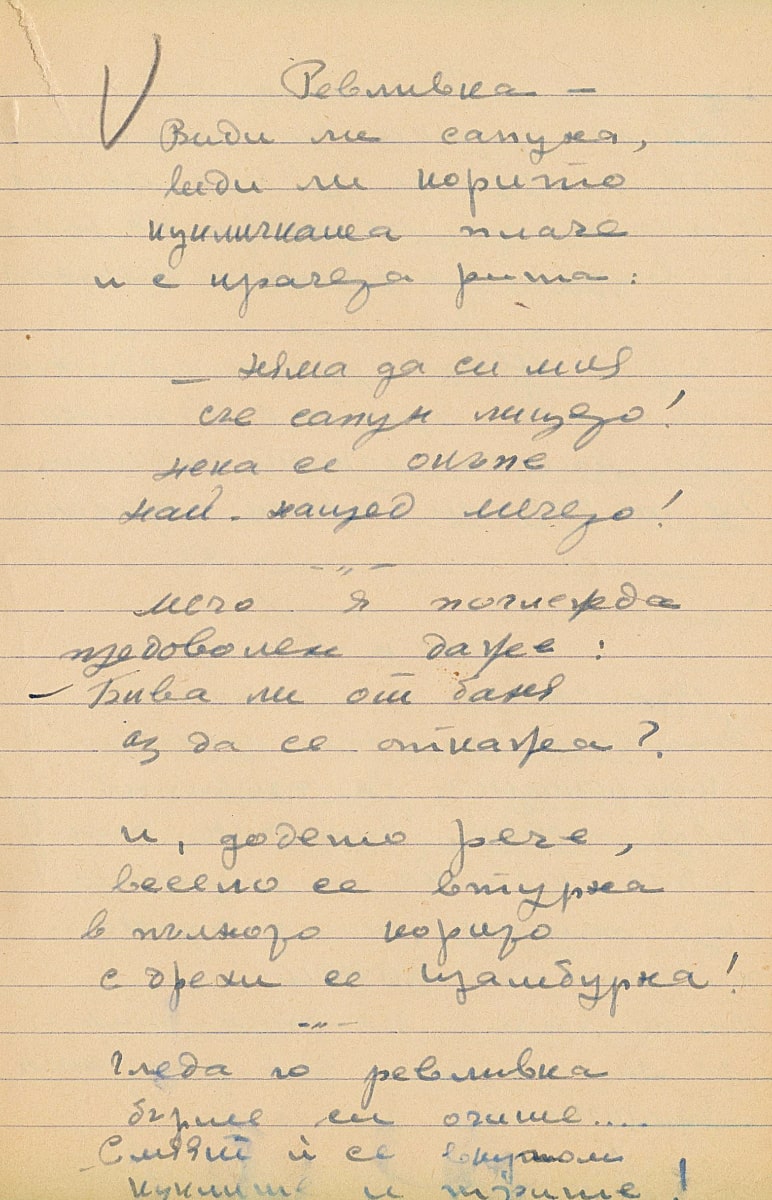 Ревливка —
Види ли сапуна,
види ли корито
кукличката плаче
и с крачеза рита:
— няма да си мия
със сапун лицезо!
нека се окъпе
най-напред мечезо!
— „ —
мечо я поглежда
предоволен даже:
— Бива ли от баня
аз да се откажа?
и, додето рече,
весело се втурна
в пълното корито
с дрехи се цамбурна!
— „ —
Гледа го ревливка
бърше си очите.....
Смеят ѝ се вкупом
куклите и трите!